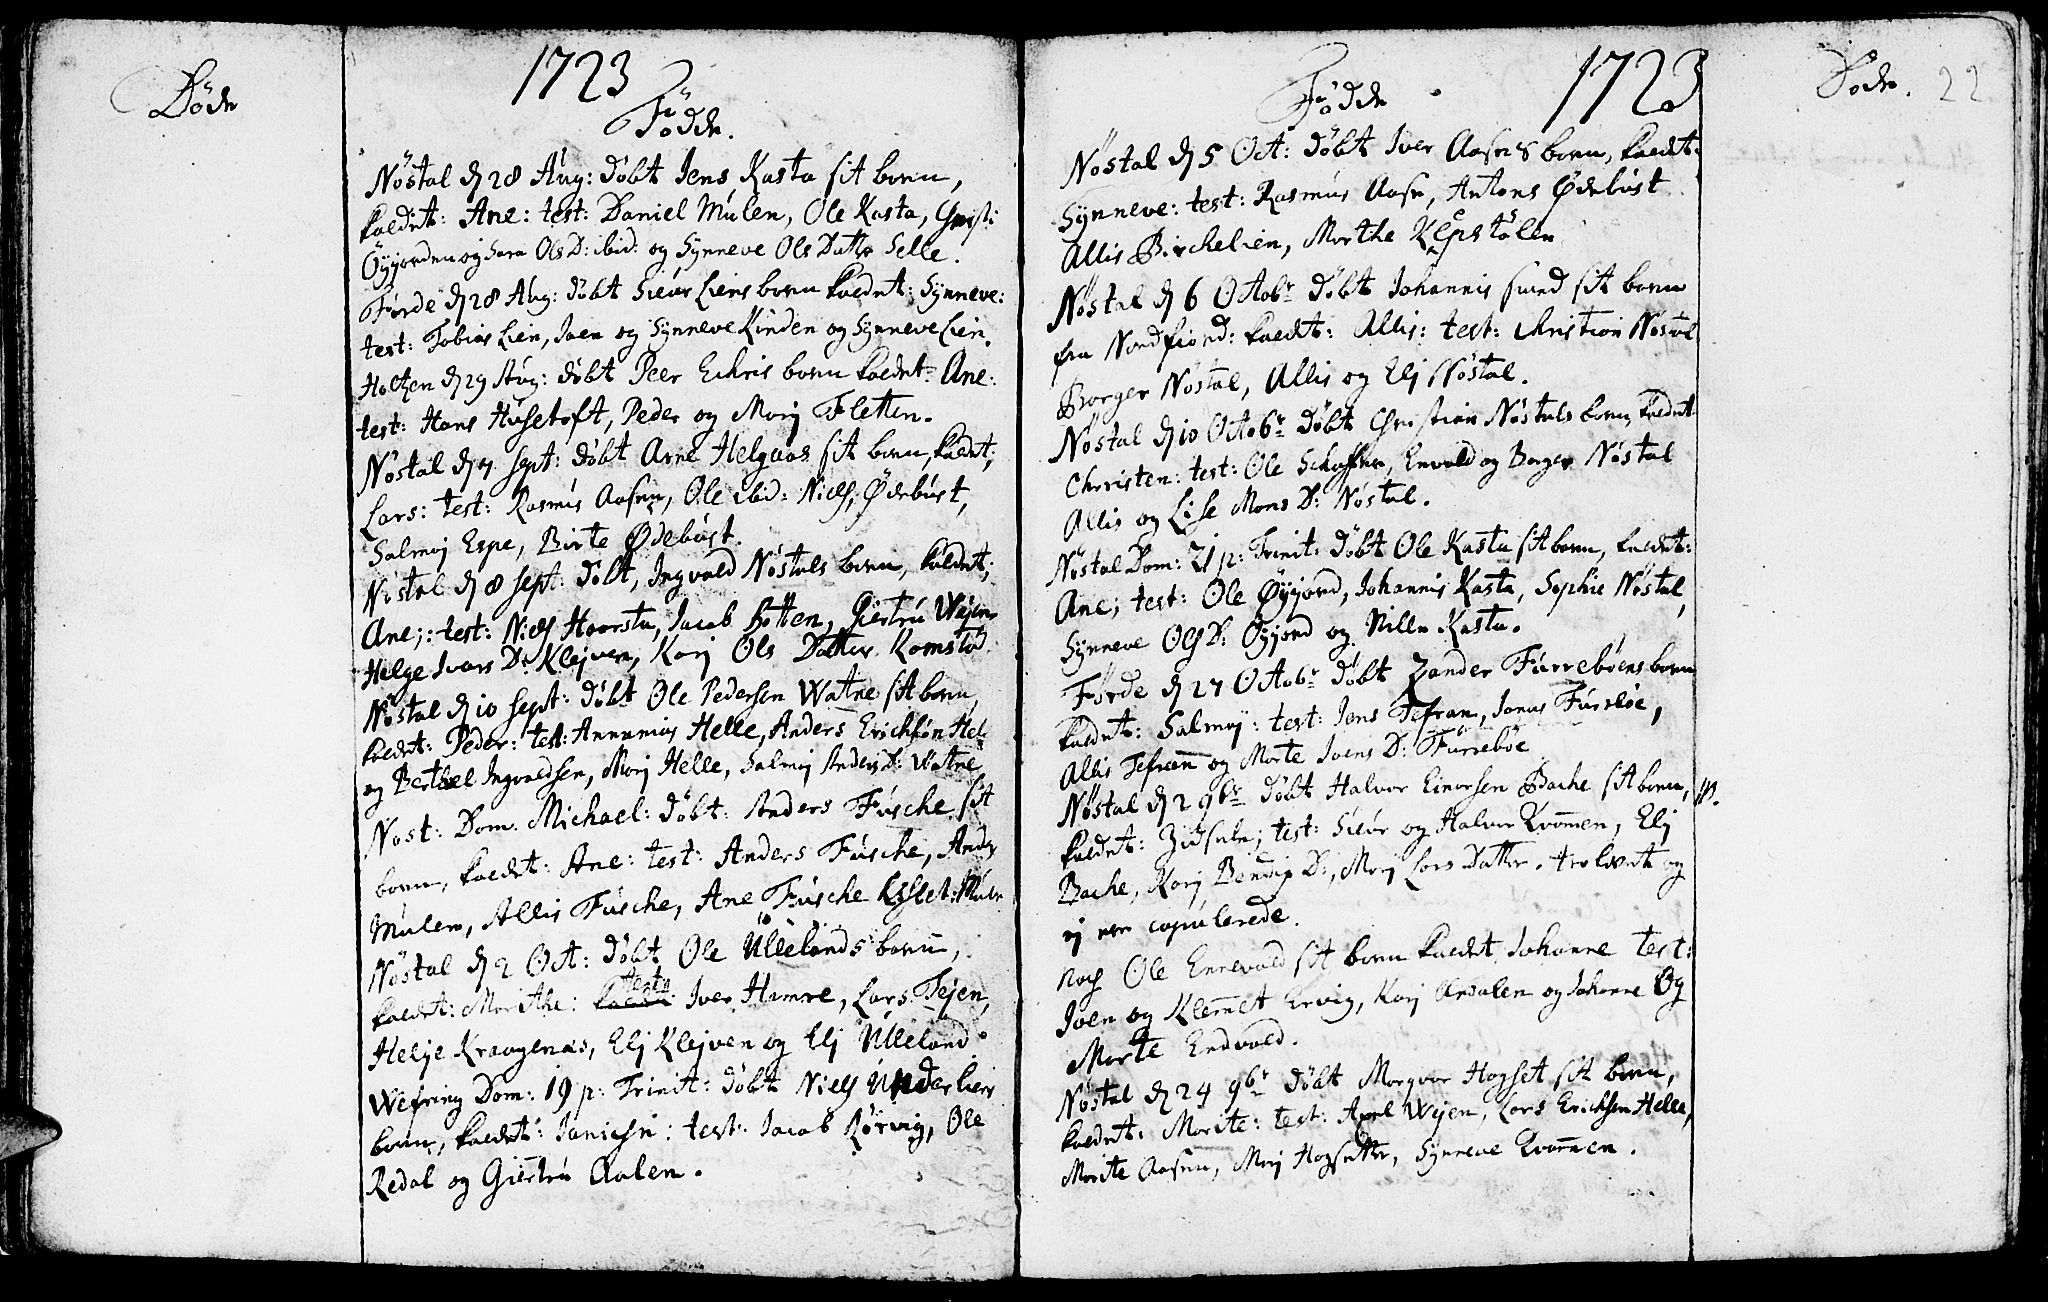 Døde
1723
Fødde.
Nöstal d 28 Aug: döbt Jens Kasta sit barn,
kaldet: Ane: test: Daniel Mulen, Ole Kasta, Christ:
Öyjorden og Sara Ols D: ibid: og Synneve Ols Datter Selle.
Förde d 28 Aug: döbt Siur Liens barn kaldet: Synneve:
test: Tobias Lien, Joen og Synneve Kinden og Synneve Lien.
Holtzen d 29 Aug: döbt Peer Echris barn kaldet: Ane:
test: Hans Husetoft, Peder og Marj Fletten.
Nöstal d 7 sept: döbt Arne Helgaas sit barn, kaldet;
Lars: test: Rasmus Aasen, Ole ibid: Niels, Ödebust,
Salmoj Espe, Birte Ödebust.
Nöstal d 8 sept: döbt, Ingvald Nöstals barn, kaldet;
Ane;: test: Niels Hoorsta, Jacob Botten, Giertru Weien
Helge Ivars D: Klejven, Karj Ols Datter Komstad
Nöstal d 10 sept: döbt Ole Pedersen Watne sit barn,
kaldet: Peder: test: Annanias Helle, Anders Erichsön Hel:
og Berthel Ingvaldsen, Marj Helle, Salmoj Anders D: Watne
Nost: Dom: Michael: döbt: Anders Füsche sit
barn, kaldet: Ane: test: Anders Füsche, Anders
Mulen, Allis Füsche, Ane Füsche Lislet: Mule
Nöstal d 2 Oct: döbt Ole Ullelands barn,
kaldet: Marithe: test: Iver Hamre, Lars Tejen,
Helje Kraagenæs, Elj Klejven og Elj Ulleland
Wefring Dom: 19 p: Trinit: döbt Niels Underliens
barn, kaldet: Janichen: test: Jacob Rörvig, Ole
Redal og Giertru Aalen.
Fødde
1723
Nöstal d 5 Oct: döbt Iver Aasens barn, kaldet:
Synneve: test: Rasmus Aasen, Antons Ödebust
Allis Birchelien, Marthe Klepstölen
Nöstal d 6 Octobr döbt Johannis sund sit barn
fra Nordfiord: kaldet: Allis: test: Christian Nöstal
Borger Nöstal, Allis og Elj Nöstal.
Nöstal d 10 Octobr döbt Christian Nöstals barn, kaldet
Christen: test: Ole, Envold og Borger Nöstal
Allis og Lise Mons D: Nöstal.
Nöstal Dom: 21 p: Trinit: döbt Ole Kasta sit barn, kaldet:
Ane; test: Ole Öyjord, Johannis Kasta, Sophie Nöstal,
Synneve Ols D: Öyjord og Nille Kasta.
Förde d 27 Octobr döbt Zander Furreböens barn
kaldet: Salmoj: test: Jens Tefran, Jonas Fureböe,
Allis Tefran og Marte Joens D: Furreböe
Nöstal d 2 9br döbt Halvor Einersen Bache sit barn,
kaldet: Zidsele; test: Siur og Halvor Kvammen, Elj
Bache, Karj Bendix D:, Marj Lars Datter. trolovet og
ej een copulerede.
Noch Ole Ennevald sit barn kaldet Johanne test:
Joen og Klemet Ervig, Karj Ansalen og Johanne Og
Marte Endvald.
Nöstal d 24 9br döbt Morgvor Hogset sit barn,
kaldet: Morite: test: Axel Weien, Lars Erichsen Helle,
Morite Aasen, Marj Hogsetter, Synneve Kvammen.
Døde. 22